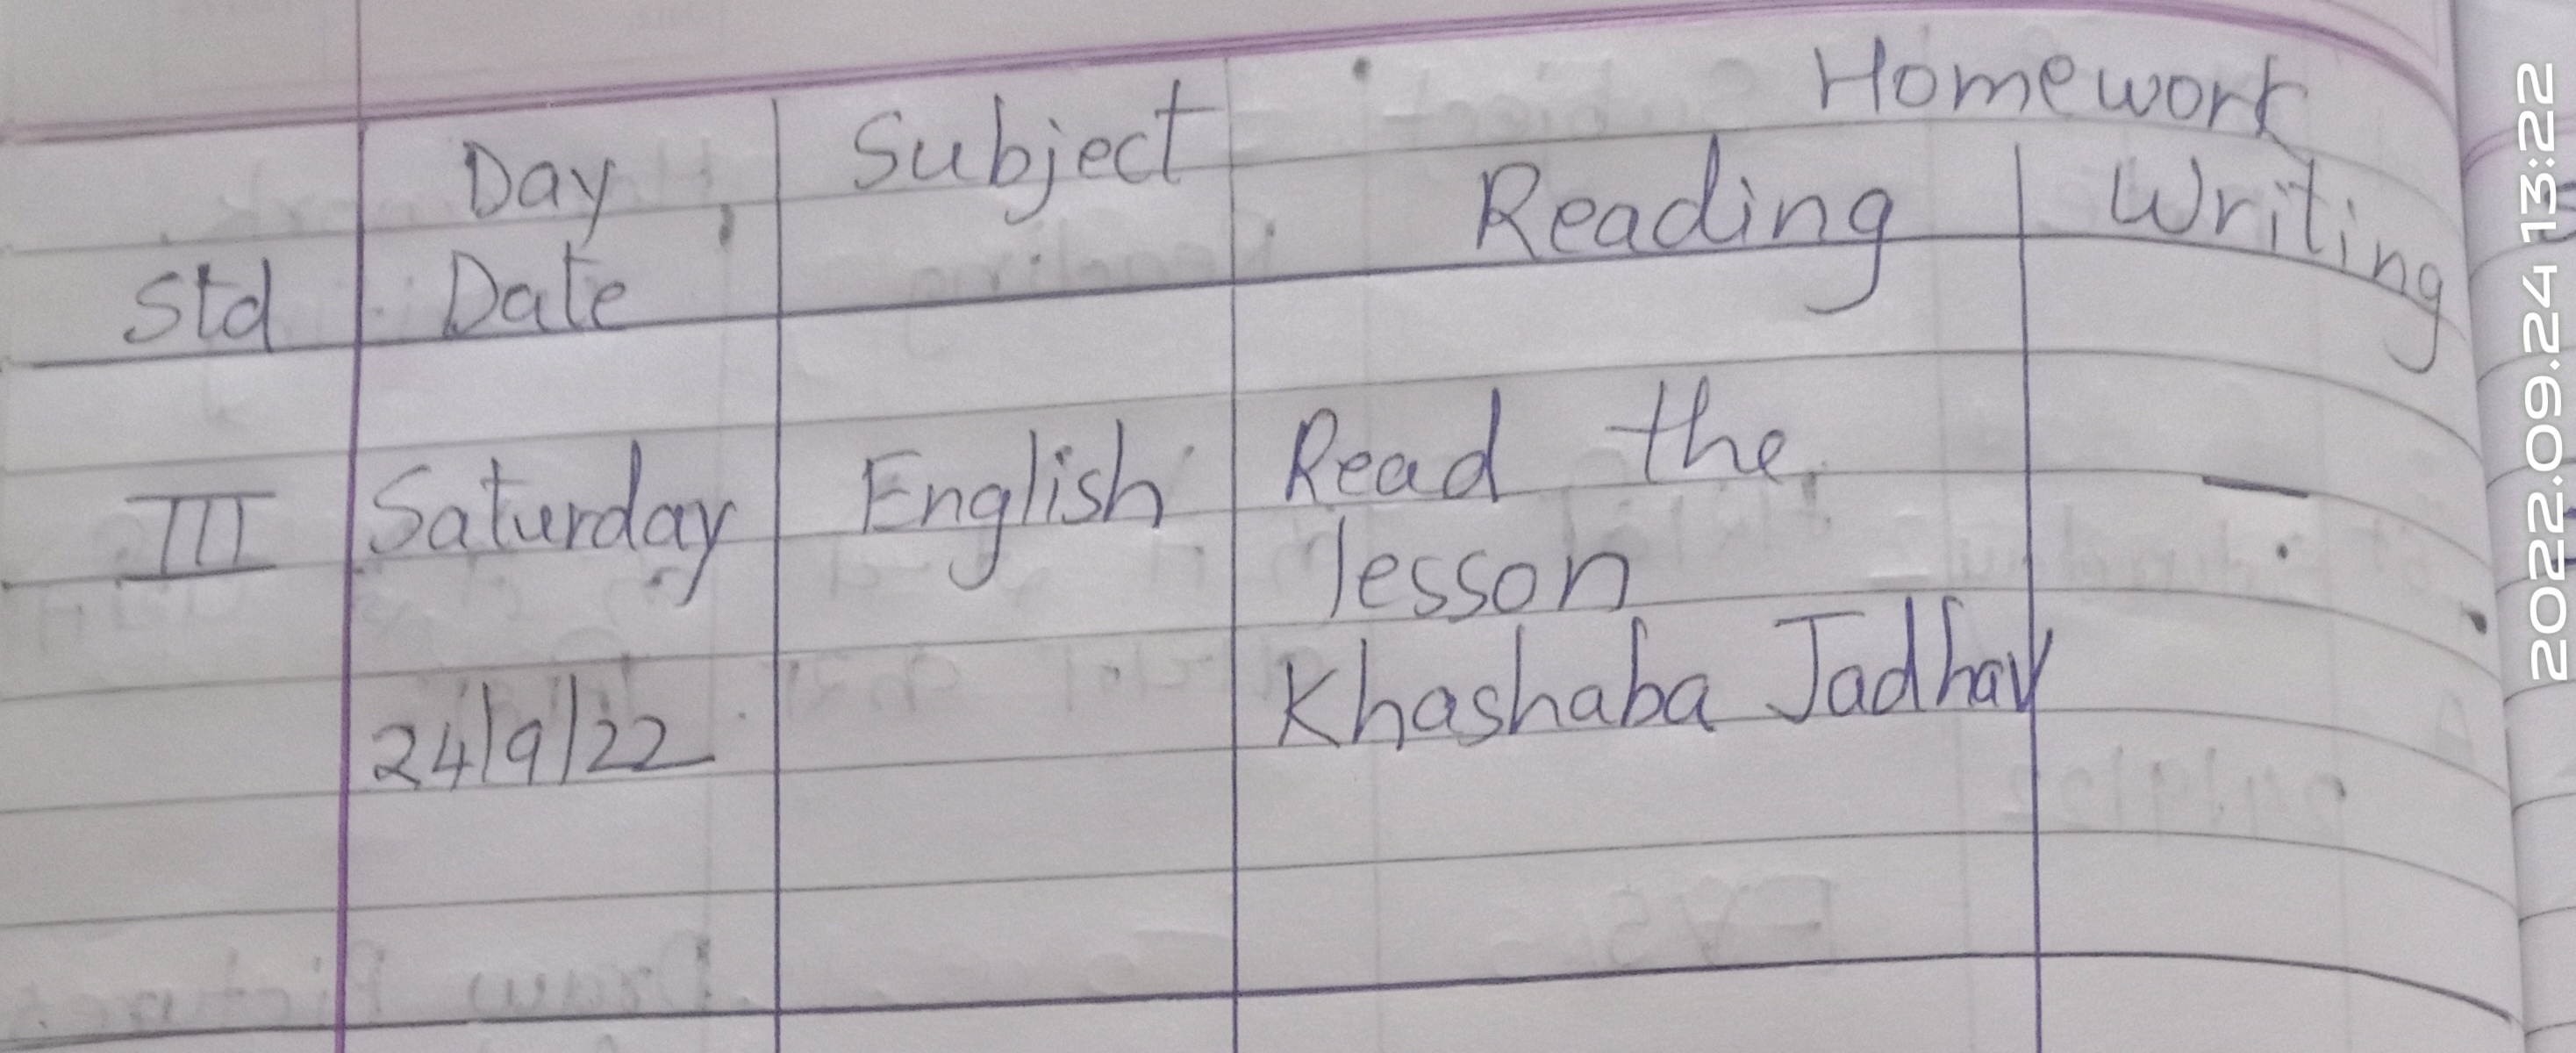 Homework
Day, Subject Reading Writing
Std Date
III Saturday English Read the —
lesson
24/9/22 Khashaba Jadhav
2022.09.24 13:22